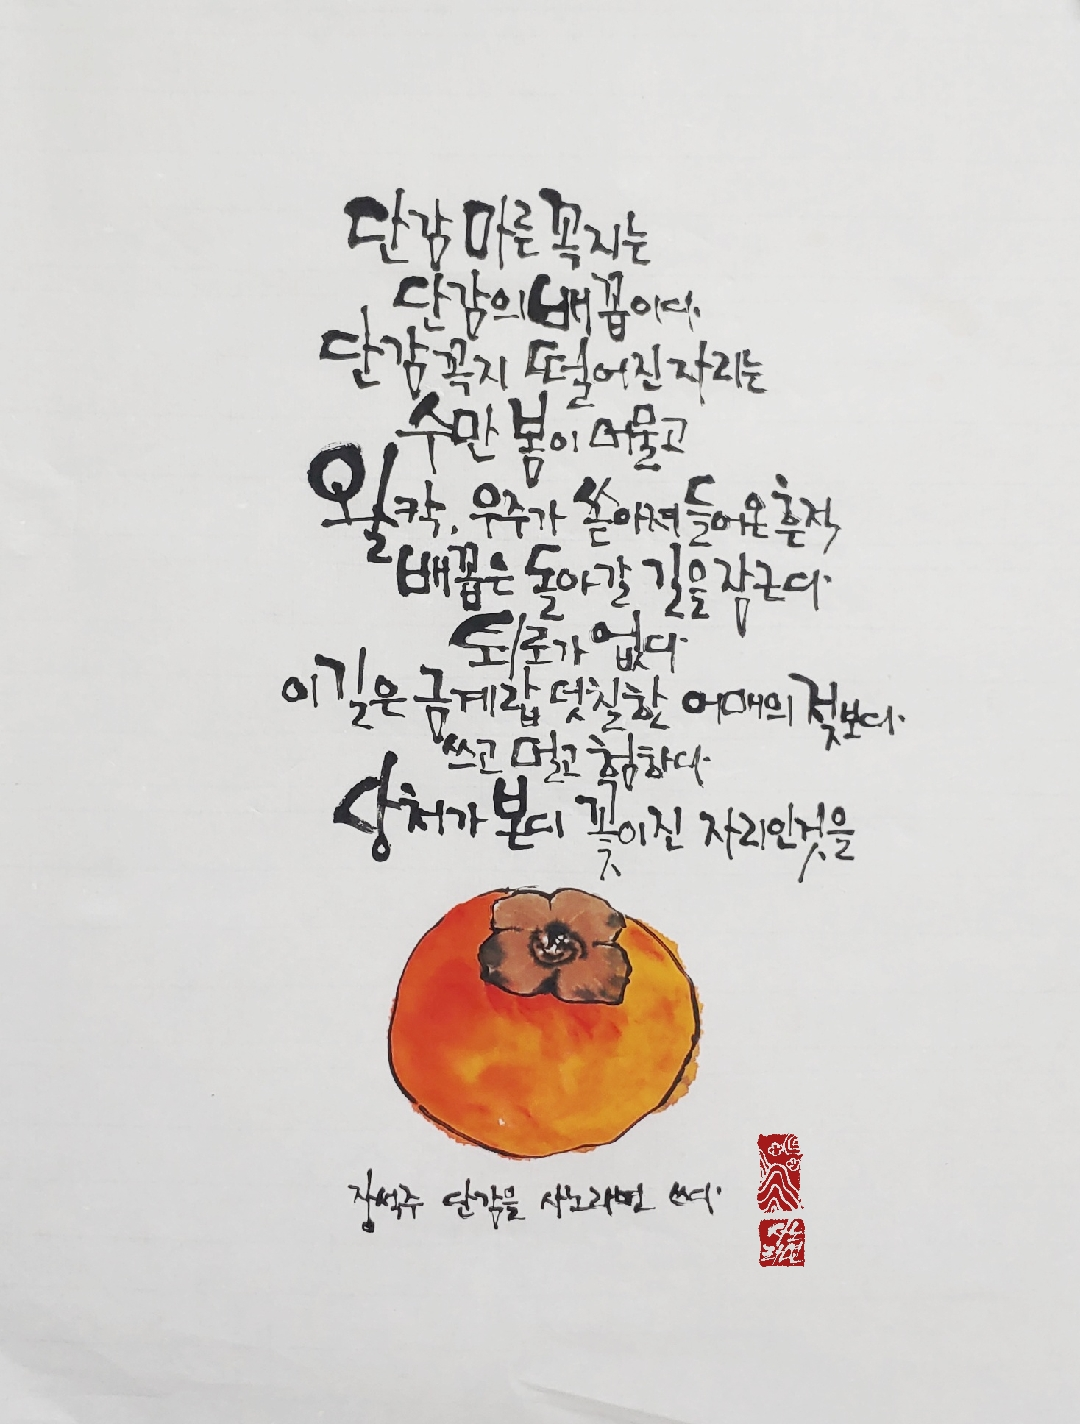 단감 마른 꼭지는
단감의 배꼽이다.
단감 꼭지 떨어진 자리는
수만 봄이 머물고
왈칵, 우주가 쏟아져 들어온 흔적
배꼽은 돌아갈 길을 잠근다.
퇴로가 없다.
이 길은 금계랍 덧칠한 어매의 젖보다.
쓰고 멀고 험하다.
상처가 본디 꽃이진 자리인것을
장석주 단감을 사노라면 쓰다.